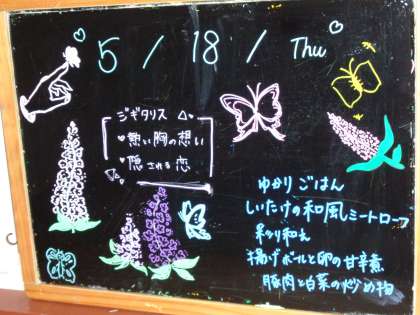 5/18/Thu
ジギタリス
熱い胸の想い
隠される恋
ゆかりごはん
しいたけの和風ミートローフ
和え
揚げボールと卵の甘辛煮
豚肉と白菜の炒め物